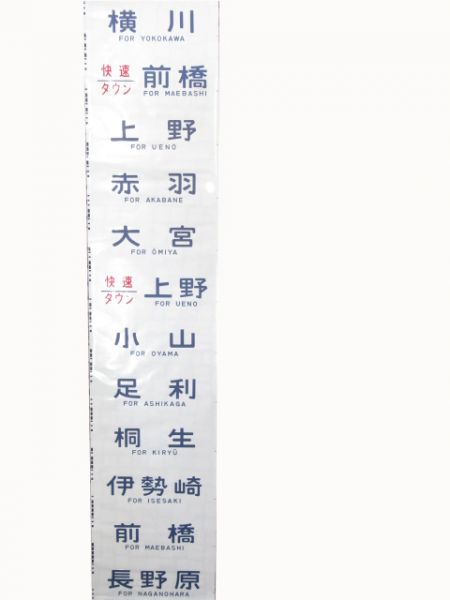 横川
FOR YOKOKAWA
快速
タウン
前橋
FOR MAEBASHI
上野
FOR UENO
赤羽
FOR AKABANE
大宮
FOR ŌMIYA
快速
タウン
上野
FOR UENO
小山
FOR OYAMA
足利
FOR ASHIKAGA
桐生
FOR KIRYŪ
伊勢崎
FOR ISESAKI
前橋
FOR MAEBASHI
長野原
FOR NAGANOHARA